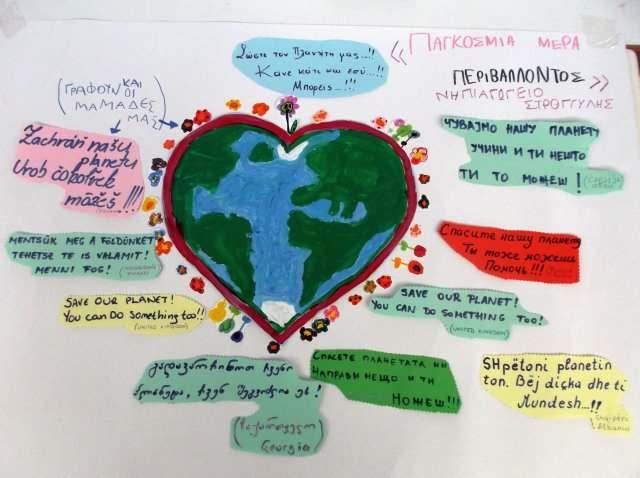 Σώστε τον Πλανήτη μας...!!
Κανε κάτι και εσύ...!!
Μπορείς...!!
<< ΠΑΓΚΟΣΜΙΑ ΜΕΡΑ
ΠΕΡΙΒΑΛΛΟΝΤΟΣ >>
ΝΗΠΙΑΓΩΓΕΙΟ
ΣΤΡΟΓΓΥΛΗΣ
(ΓΡΑΦΟΥΝ ΚΑΙ
ΟΙ
ΜΑΜΑΔΕΣ
ΜΑΣ)
Zachráň našu
planétu
Urob čokoľvek
môžěš !!!
ЧУВАЈМО НАШУ ПЛАНЕТУ
УЧИНИ И ТИ НЕШТО
ТИ ТО МОЖЕШ !
MENTSÜK MEG A FÖLDÜNKET!
TEHETSZ TE IS VALAMIT!
MENNI FOG!
Спасите нашу планету
Ты тоже можешь
Помочь!!!
SAVE OUR PLANET!
You can Do Something too!!
(UNITED KINGDOM)
SAVE OUR PLANET!
YOU CAN DO SOMETHING TOO!
(UNITED KINGDOM)
გადავარჩინოთ ჩვენი
პლანეტა, ჩვენ შეგვიძლია ეს !
(საქართველო
Georgia
СПАСЕТЕ ПЛАНЕТАТА НИ
НАПРАВИ НЕЩО И ТИ
МОЖЕШ!!!
SHpëtoni planetin
ton. Bëj diçka dhe ti
Mundesh...!!
Shqipëri
Albania